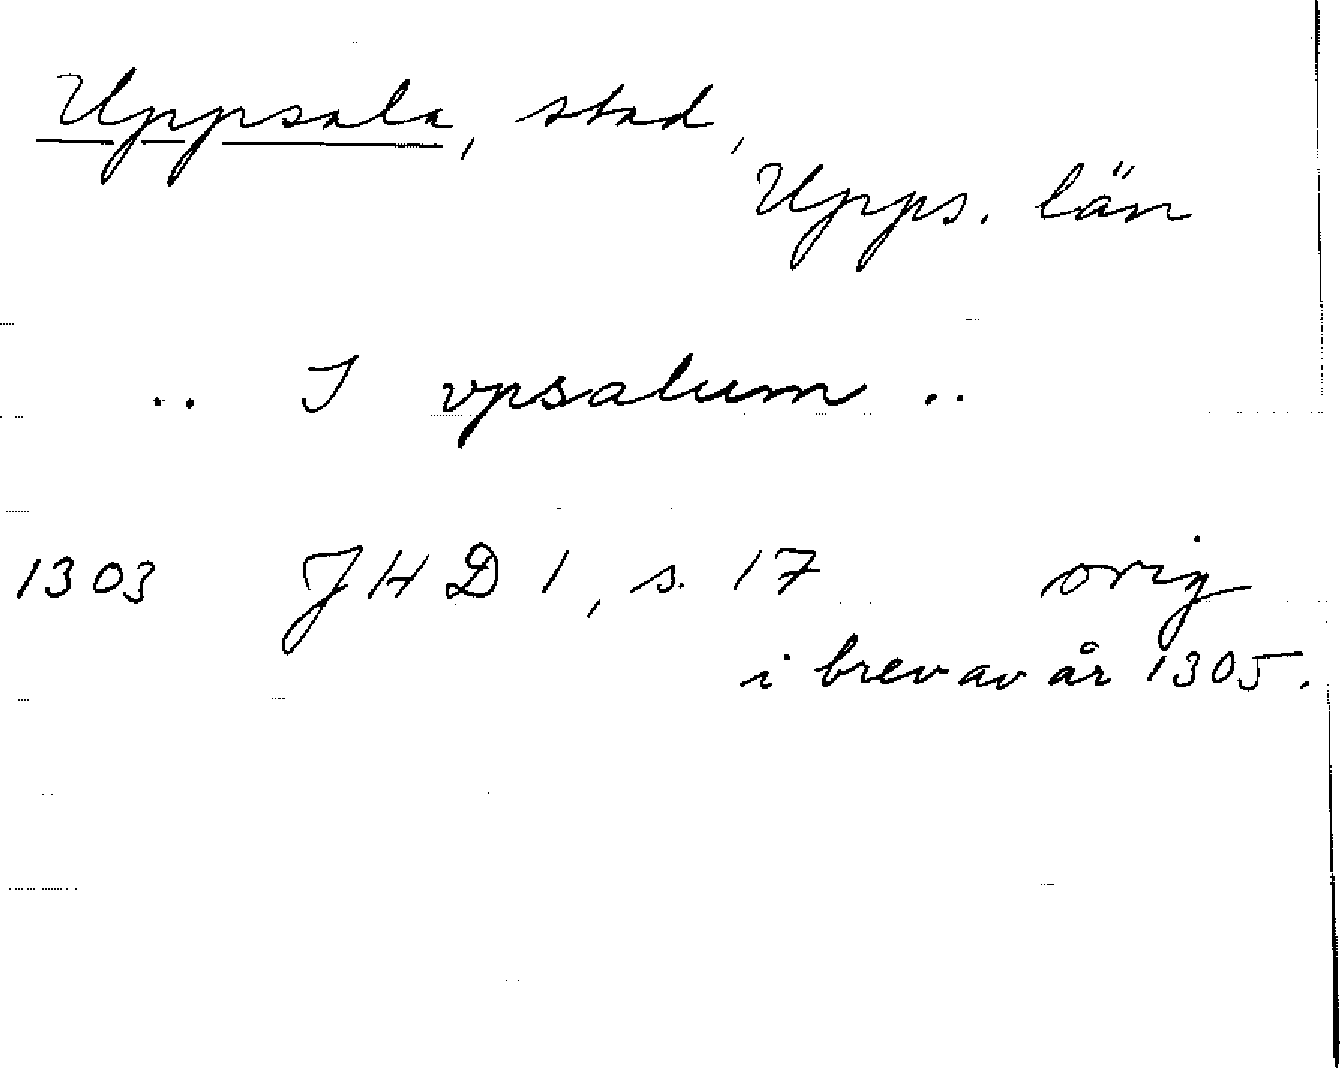 Uppsala, stad,
Upps. län
.. I vpsalum ..
1303 JHD 1, s. 17 orig
i brev av år 1305.